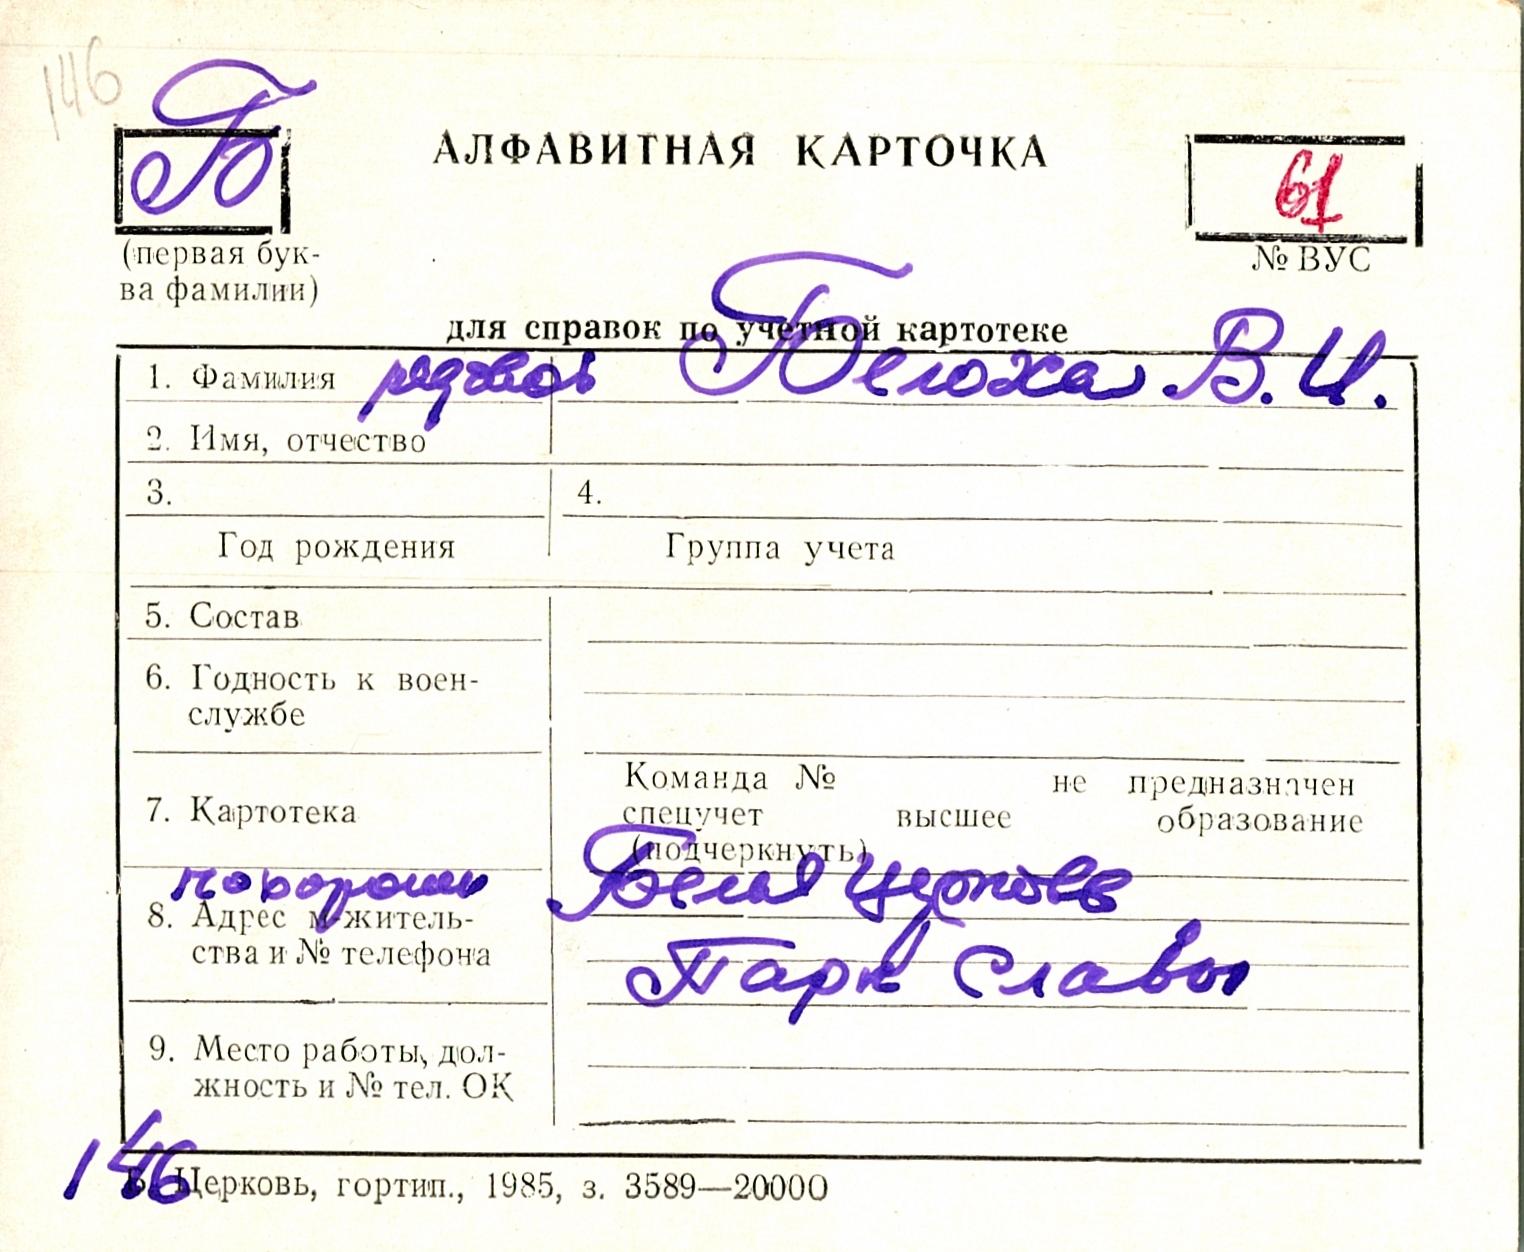 146
Б
АЛФАВИТНАЯ КАРТОЧКА
61
(первая бук-
ва фамилии)
№ ВУС
для справок по учетной картотеке
1. Фамилия рядовой Белоха В. И.
2. Имя, отчество
3. 4.
Год рождения Группа учета
5. Состав
6. Годность к воен-
службе
7. Картотека
Команда № не предназначен
спецучет высшее образование
(подчеркнуть)
похорошен Белая Церковь
8. Адрес м-житель-
ства и № телефона
Парк Славы
9. Место работы, дол-
жность и № тел. ОК
146
Б. Церковь, гортип., 1985, з. 3589—20000